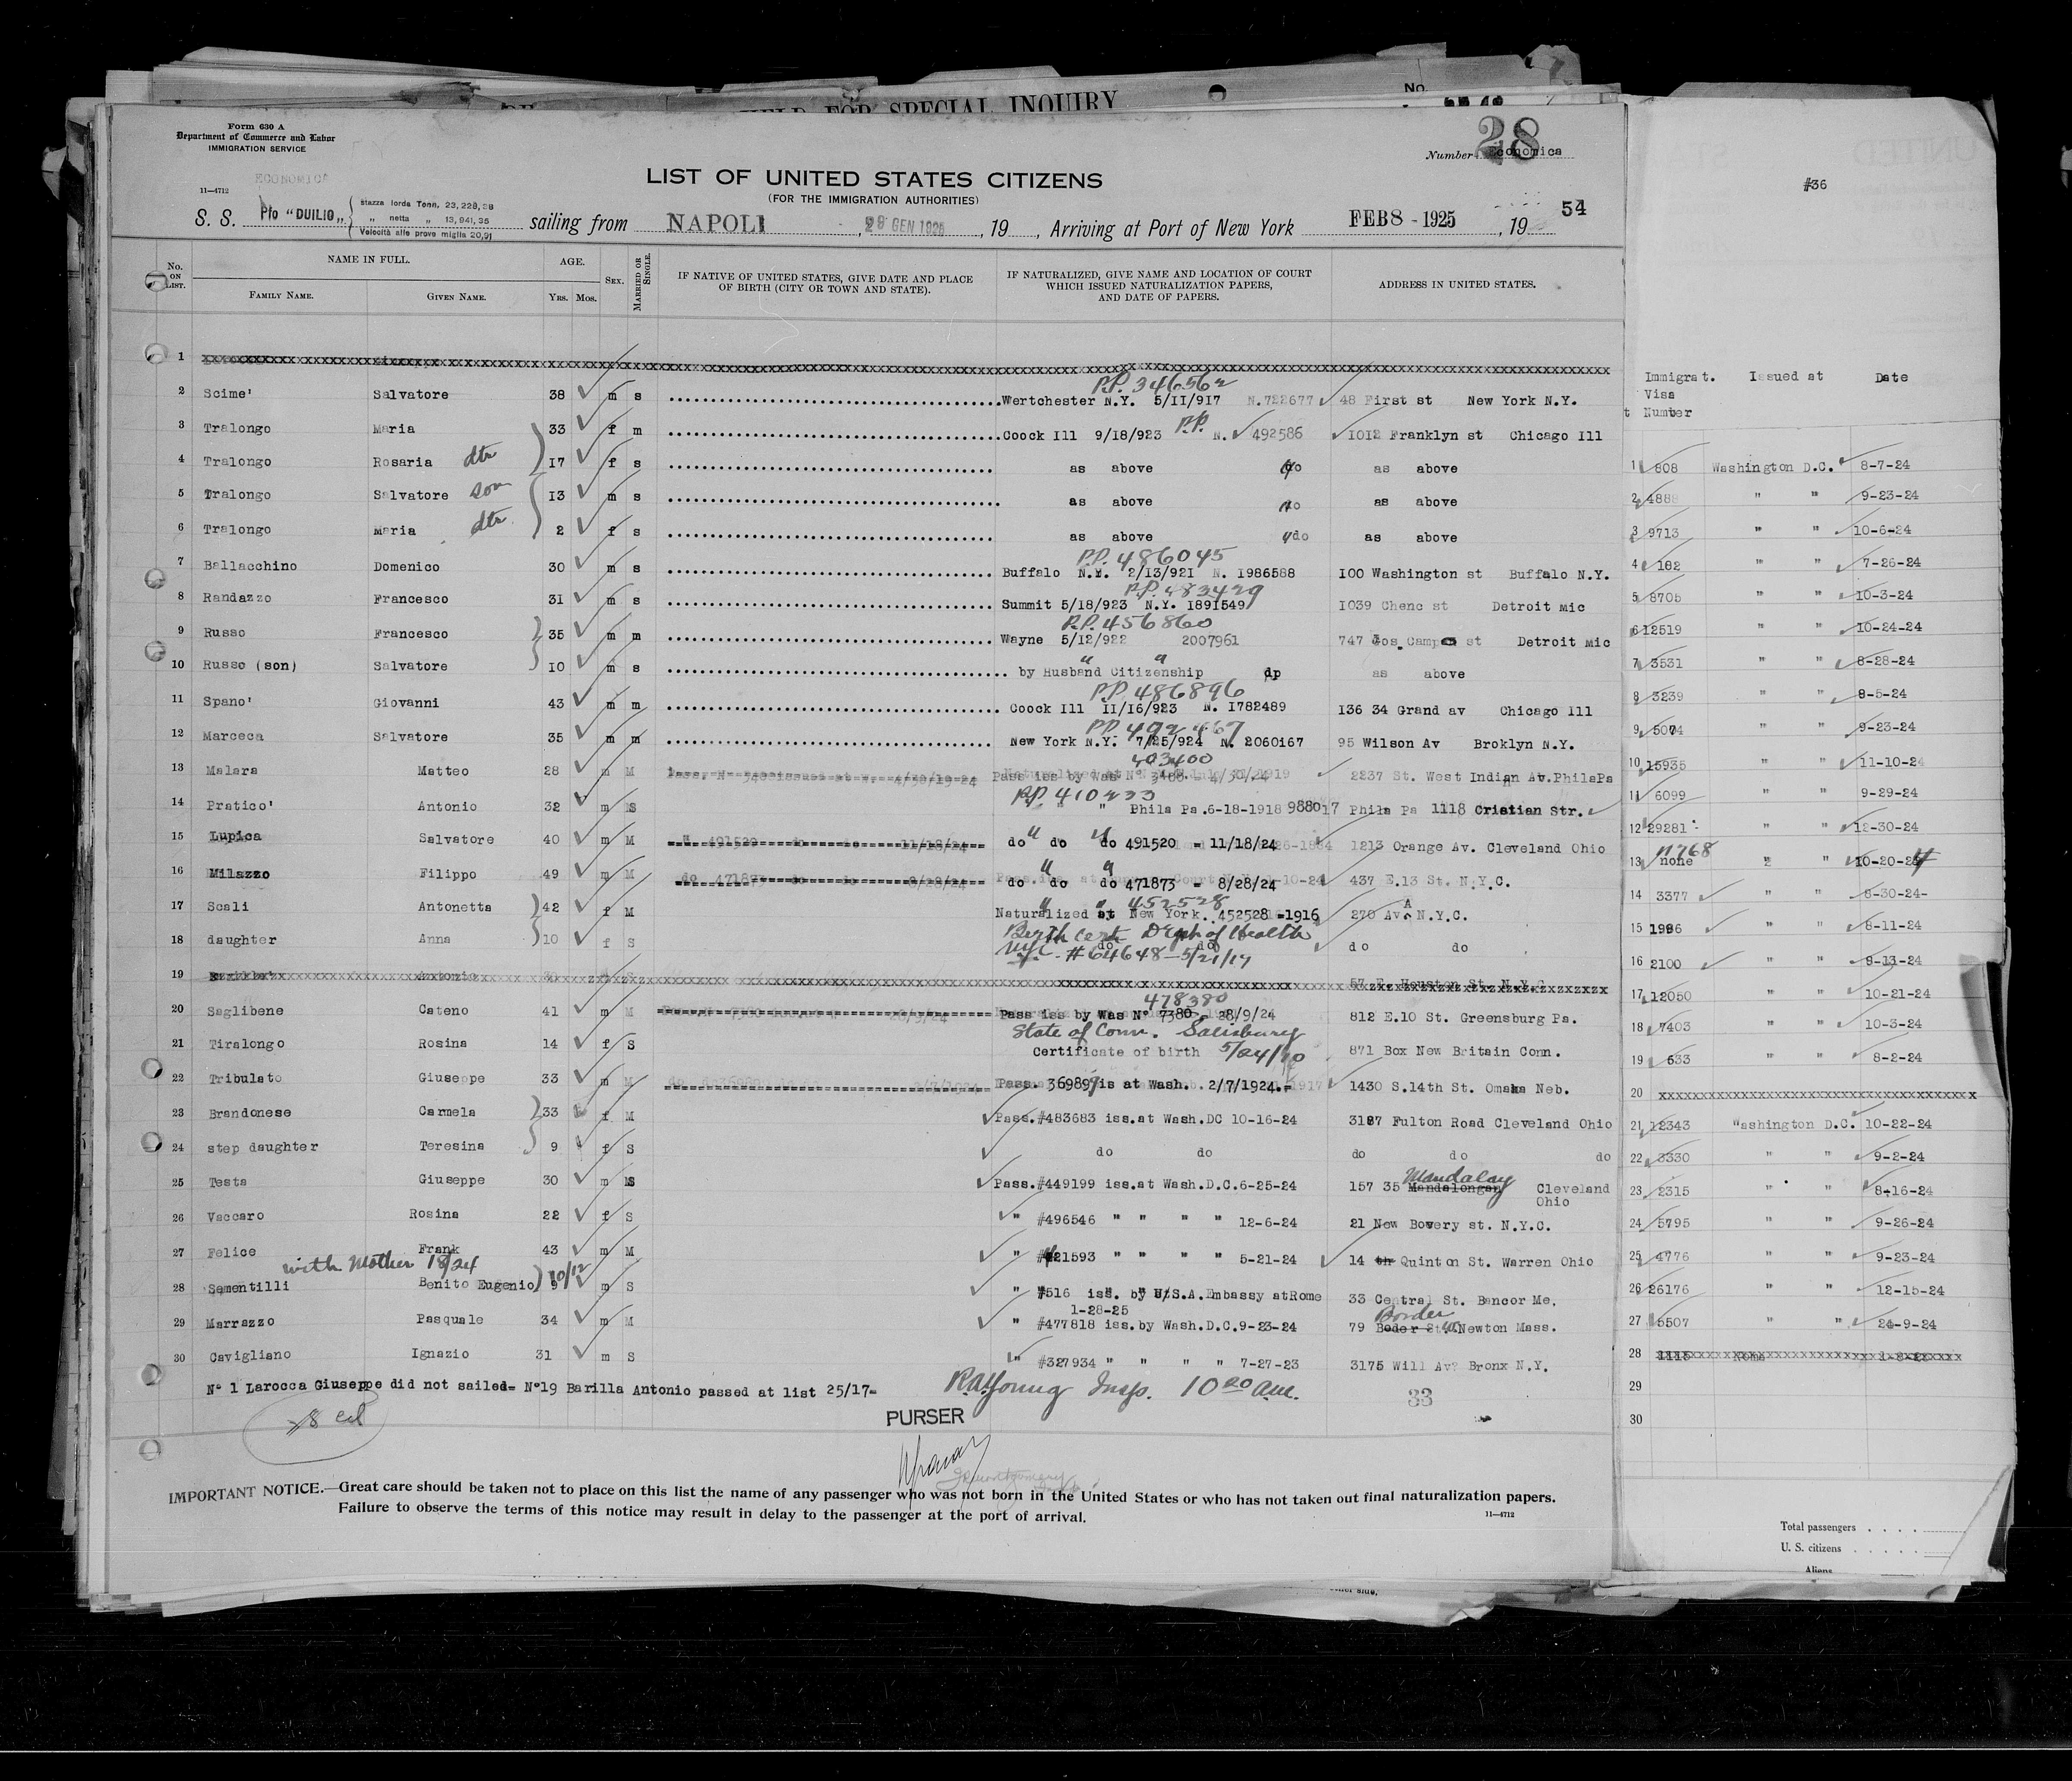 HELD FOR SPECIAL INQUIRY
No.
Form 630 A
Department of Commerce and Labor
IMMIGRATION SERVICE
28
Number Economica
ECONOMICA
11—4712
LIST OF UNITED STATES CITIZENS
(FOR THE IMMIGRATION AUTHORITIES)
54
S. S. P/o "DUILIO" stazza lorda Tonn. 23,228,38
" netta " 13,941,35
Velocità alle prove miglia 20,91
sailing from NAPOLI, 29 GEN 1925, 19 , Arriving at Port of New York FEB 8 - 1925, 19
No. ON LIST. NAME IN FULL. AGE. SEX. MARRIED OR SINGLE. IF NATIVE OF UNITED STATES, GIVE DATE AND PLACE OF BIRTH (CITY OR TOWN AND STATE). IF NATURALIZED, GIVE NAME AND LOCATION OF COURT WHICH ISSUED NATURALIZATION PAPERS, AND DATE OF PAPERS. ADDRESS IN UNITED STATES.
FAMILY NAME. GIVEN NAME. YRS. MOS.
1
P.P. 346562
2 Scime' Salvatore 38 m s Wertchester N.Y. 5/II/917 N.722677 48 First st New York N.Y.
3 Tralongo Maria 33 f m Coock Ill 9/18/923 P.P. N. 492586 I0I2 Franklyn st Chicago Ill
4 Tralongo Rosaria dtr I7 f s as above do as above
5 Tralongo Salvatore son I3 m s as above do as above
6 Tralongo Maria dtr. 2 f s as above do as above
P.P. 486045
7 Ballacchino Domenico 30 m s Buffalo N.Y. 2/I3/921 N. I986588 I00 Washington st Buffalo N.Y.
P.P. 483429
8 Randazzo Francesco 31 m s Summit 5/18/923 N.Y. I891549 I039 Chene st Detroit Mic
P.P. 456860
9 Russo Francesco 35 m m Wayne 5/12/922 2007961 747 Jos. Campao st Detroit Mic
10 Russo (son) Salvatore IO m s by Husband Citizenship as above
P.P. 486896
11 Spano' Giovanni 43 m m Coock Ill II/16/923 N. I782489 I36 34 Grand av Chicago Ill
P.P. 492467
12 Marceca Salvatore 35 m m New York N.Y. 7/25/924 N. 2060167 95 Wilson Av Broklyn N.Y.
403400
13 Malara Matteo 28 m M Pass iss by Was N° 2237 St. West Indian Av.PhilaPa
P.P. 410233
14 Pratico' Antonio 32 m S " " Phila Pa.6-18-1918 988017 Phila Pa 1118 Cristian Str.
15 Lupica Salvatore 40 m M do do do 491520 - 11/18/24 1213 Orange Av. Cleveland Ohio
16 Milazzo Filippo 49 m M do do do 471873 - 8/28/24 437 E.13 St. N.Y.C.
452528
17 Scali Antonetta 42 f M Naturalized at New York. 452528 -1916 270 Av A N.Y.C.
Birth cert Dept of Health
18 daughter Anna 10 f S do do do do
NYC - #64648 - 5/21/14
19 Antonio 57 E. Houston St. N.Y.C.
478380
20 Saglibene Cateno 41 m M Pass iss by Was N° 7380 - 28/9/24 812 E.10 St. Greensburg Pa.
State of Conn. Salisbury
21 Tiralongo Rosina 14 f S Certificate of birth 5/24/10 871 Box New Britain Conn.
22 Tribulato Giuseppe 33 m M Pass. 369897 is at Wash. 2/7/1924.- 1430 S.14th St. Omaha Neb.
23 Brandonese Carmela 33 f M Pass.#483683 iss.at Wash.DC 10-16-24 3187 Fulton Road Cleveland Ohio
24 step daughter Teresina 9 f S do do do do do
Mandalay
25 Testa Giuseppe 30 m S Pass.#449199 iss.at Wash.D.C.6-25-24 157 35 Mandalongan Cleveland Ohio
26 Vaccaro Rosina 22 f S " #496546 " " " " 12-6-24 21 New Bowery st. N.Y.C.
27 Felice Frank 43 m M " #421593 " " " " 5-21-24 14 th Quinton St. Warren Ohio
with Mother 18/24
28 Sementilli Benito Eugenio 9 10/12 m S " #516 iss. by U.S.A.Embassy atRome 33 Central St. Bancor Me.
1-28-25
Border
29 Marrazzo Pasquale 34 m M " #477818 iss.by Wash.D.C.9-23-24 79 Boder St. W. Newton Mass.
30 Cavigliano Ignazio 31 m S " #327934 " " " " 7-27-23 3175 Will Av? Bronx N.Y.
N° 1 Larocca Giuseppe did not sailed- N°19 Barilla Antonio passed at list 25/17-
R.A. Young Insp. 10 20 am.
33
PURSER
IMPORTANT NOTICE.—Great care should be taken not to place on this list the name of any passenger who was not born in the United States or who has not taken out final naturalization papers.
Failure to observe the terms of this notice may result in delay to the passenger at the port of arrival.
11—4712
#36
Immigrat. Visa Number Issued at Date
1 808 Washington D.C. 8-7-24
2 4888 " " 9-23-24
3 9713 " " 10-6-24
4 182 " " 7-26-24
5 8705 " " 10-3-24
6 12519 " " 10-24-24
7 3531 " " 8-28-24
8 3239 " " 8-5-24
9 5074 " " 9-23-24
10 15935 " " 11-10-24
11 6099 " " 9-29-24
12 29281 " " 12-30-24
11768
13 none " " 10-20-24
14 3377 " " 8-30-24-
15 1996 " " 8-11-24
16 2100 " " 8-13-24
17 12050 " " 10-21-24
18 7403 " " 10-3-24
19 633 " " 8-2-24
20 xxxxxxxxxxxxxxxxxxxxxxxxxxxxxxxxxxx
21 12343 Washington D.C. 10-22-24
22 3330 " " 9-2-24
23 2315 " " 8-16-24
24 5795 " " 9-26-24
25 4776 " " 9-23-24
26 26176 " " 12-15-24
27 5507 " " 24-9-24
28 1115 Rome
29
30
Total passengers
U. S. citizens
Aliens